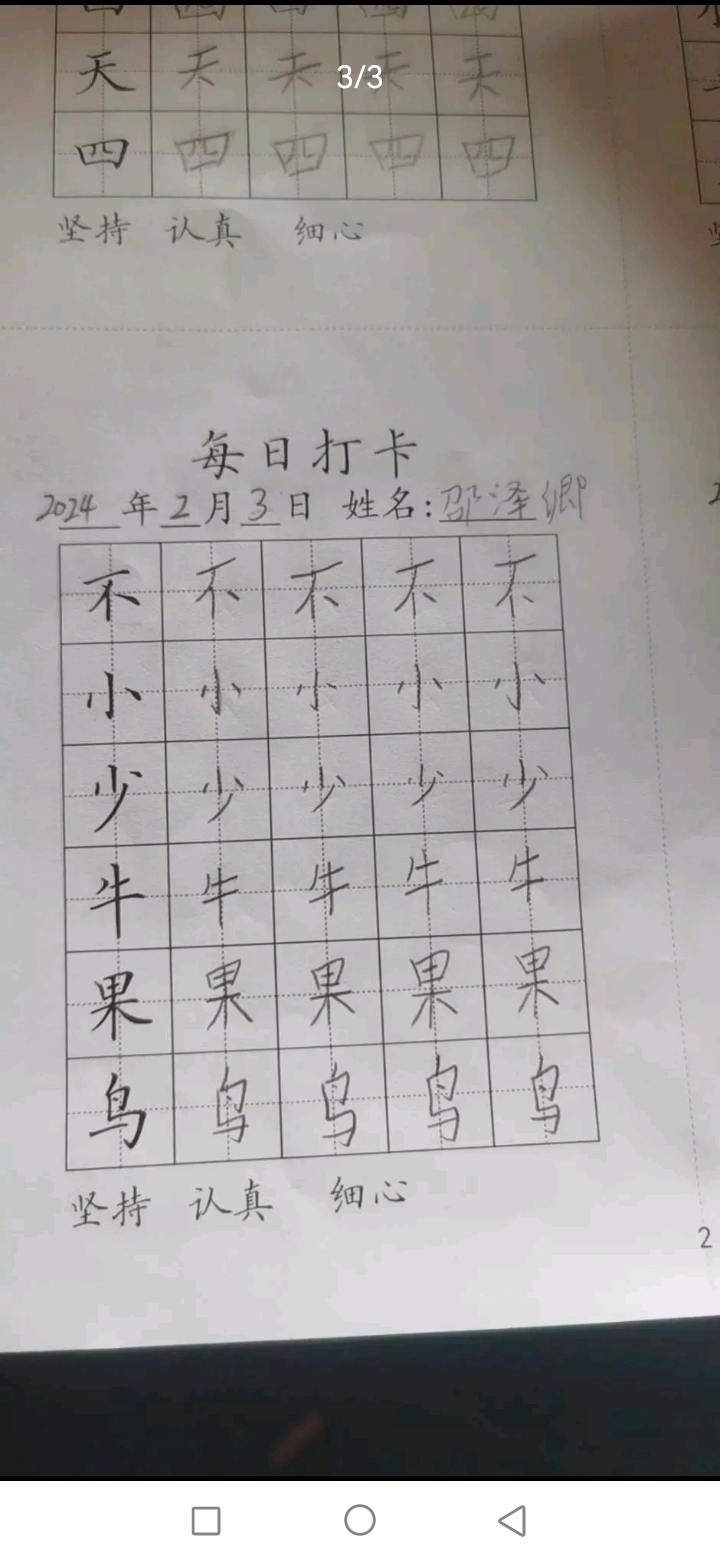 天 天 天 3/3 天 天
四 四 四 四 四
坚持 认真 细心
每日打卡
2024年2月3日 姓名:邵泽卿
不 不 不 不 不
小 小 小 小 小
少 少 少 少 少
牛 牛 牛 牛 牛
果 果 果 果 果
鸟 鸟 鸟 鸟 鸟
坚持 认真 细心
2